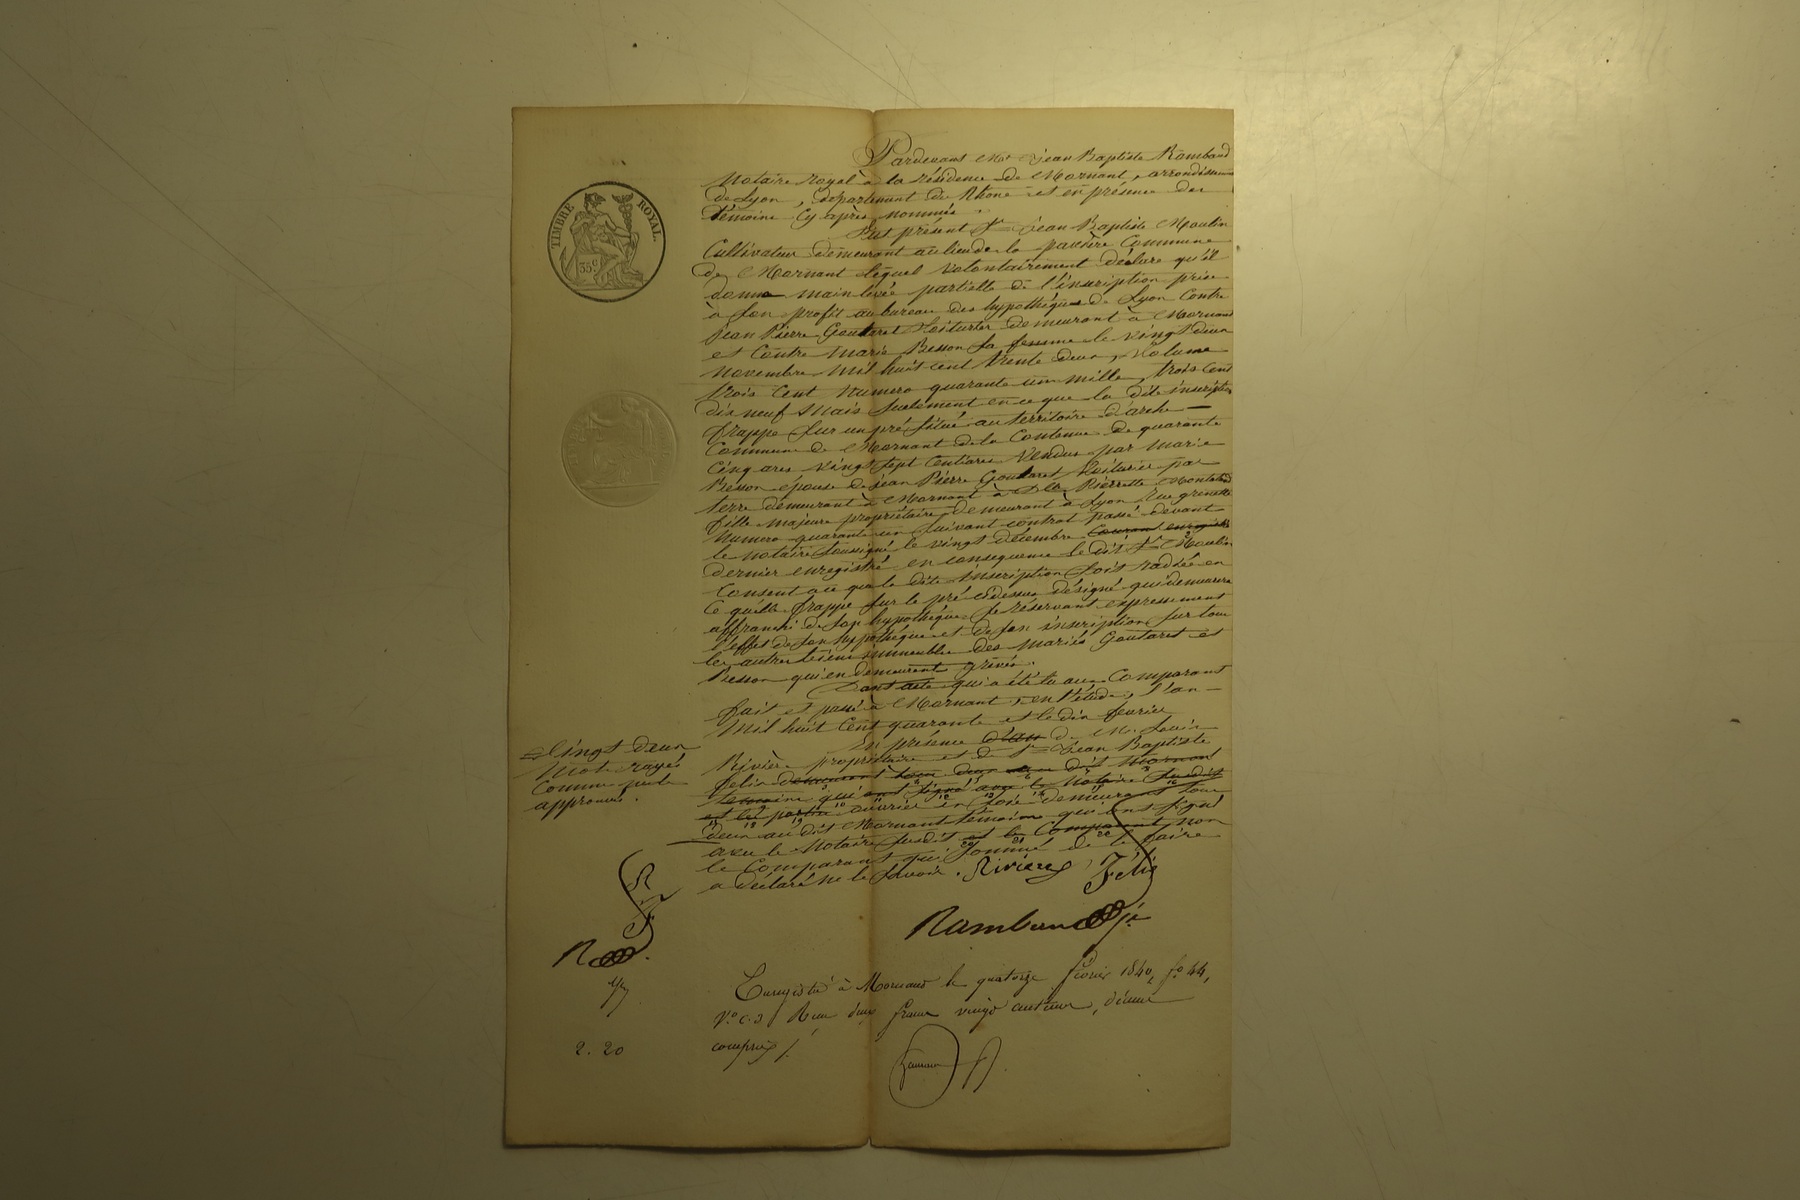 TIMBRE ROYAL.
35 c
Pardevant Me Jean Baptiste Rambaud
Notaire royal à la résidence de Mornant, arrondissement
de Lyon, département du Rhône et en présence des
témoins cy après nommés.
Fut présent Sr Jean Baptiste Moulin
Cultivateur demeurant au lieu de la Commune
de Mornant lequel volontairement déclare qu'il
donne main levée partielle de l'inscription prise
à son profit au bureau des hypothèques de Lyon contre
Jean Pierre Goutaret Voiturier demeurant à Mornant
et contre Marie Besson sa femme le vingt deux
novembre mil huit cent trente deux, volume
trois cent numero quarante un mille, trois cent
dix neuf Mais seulement en ce que la dite inscription
frappe sur un pré situé au territoire d'arche
Commune de Mornant de la Contenue de quarante
Cinq ares vingt sept Centiares Vendus par Marie
Besson épouse de Jean Pierre Goutaret Voiturier par
terre demeurant à Mornant à Dlle Pierrette
fille majeure propriétaire demeurant à Lyon rue grenette
numero quarante un suivant contrat passé devant
le notaire soussigné le vingt décembre Courant enregistré
dernier enregistré en consequence le dit Sr Moulin
Consent à ce que la dite inscription sois radiée en
ce qu'elle frappe sur le pré cidessus désigné qui demeurera
affranchi de son hypothèque se réservant expressement
l'effet de son hypothèque et de son inscription sur tous
les autres biens immeubles des mariés Goutaret et
Besson qui en demeurent grévés.
Dont acte qui a été lu au Comparant
fait et passé à Mornant, en l'étude, l'an
Mil huit Cent quarante et le dix fevrier
En présence de Mr Louis
Rivière propriétaire et de Sr Jean Baptiste
felix demeurant tous deux au dit Mornant
temoins qui ont signé avec le Notaire susdit
et les parties ouvrier en soie demeurant tous
deux au dit Mornant temoins qui ont signé
avec le Notaire susdit et le Comparant non
le Comparant qui sommé de le faire
a déclaré ne le savoir. Rivière Félix
Vingt deux
Mots rayés
Comme nuls
approuvés.
R
F
R
Rambaud
Enregistré à Mornant le quatorze février 1840, fo 44,
Vo c. 2 Reçu deux francs vingt centimes, décime
compris
2. 20